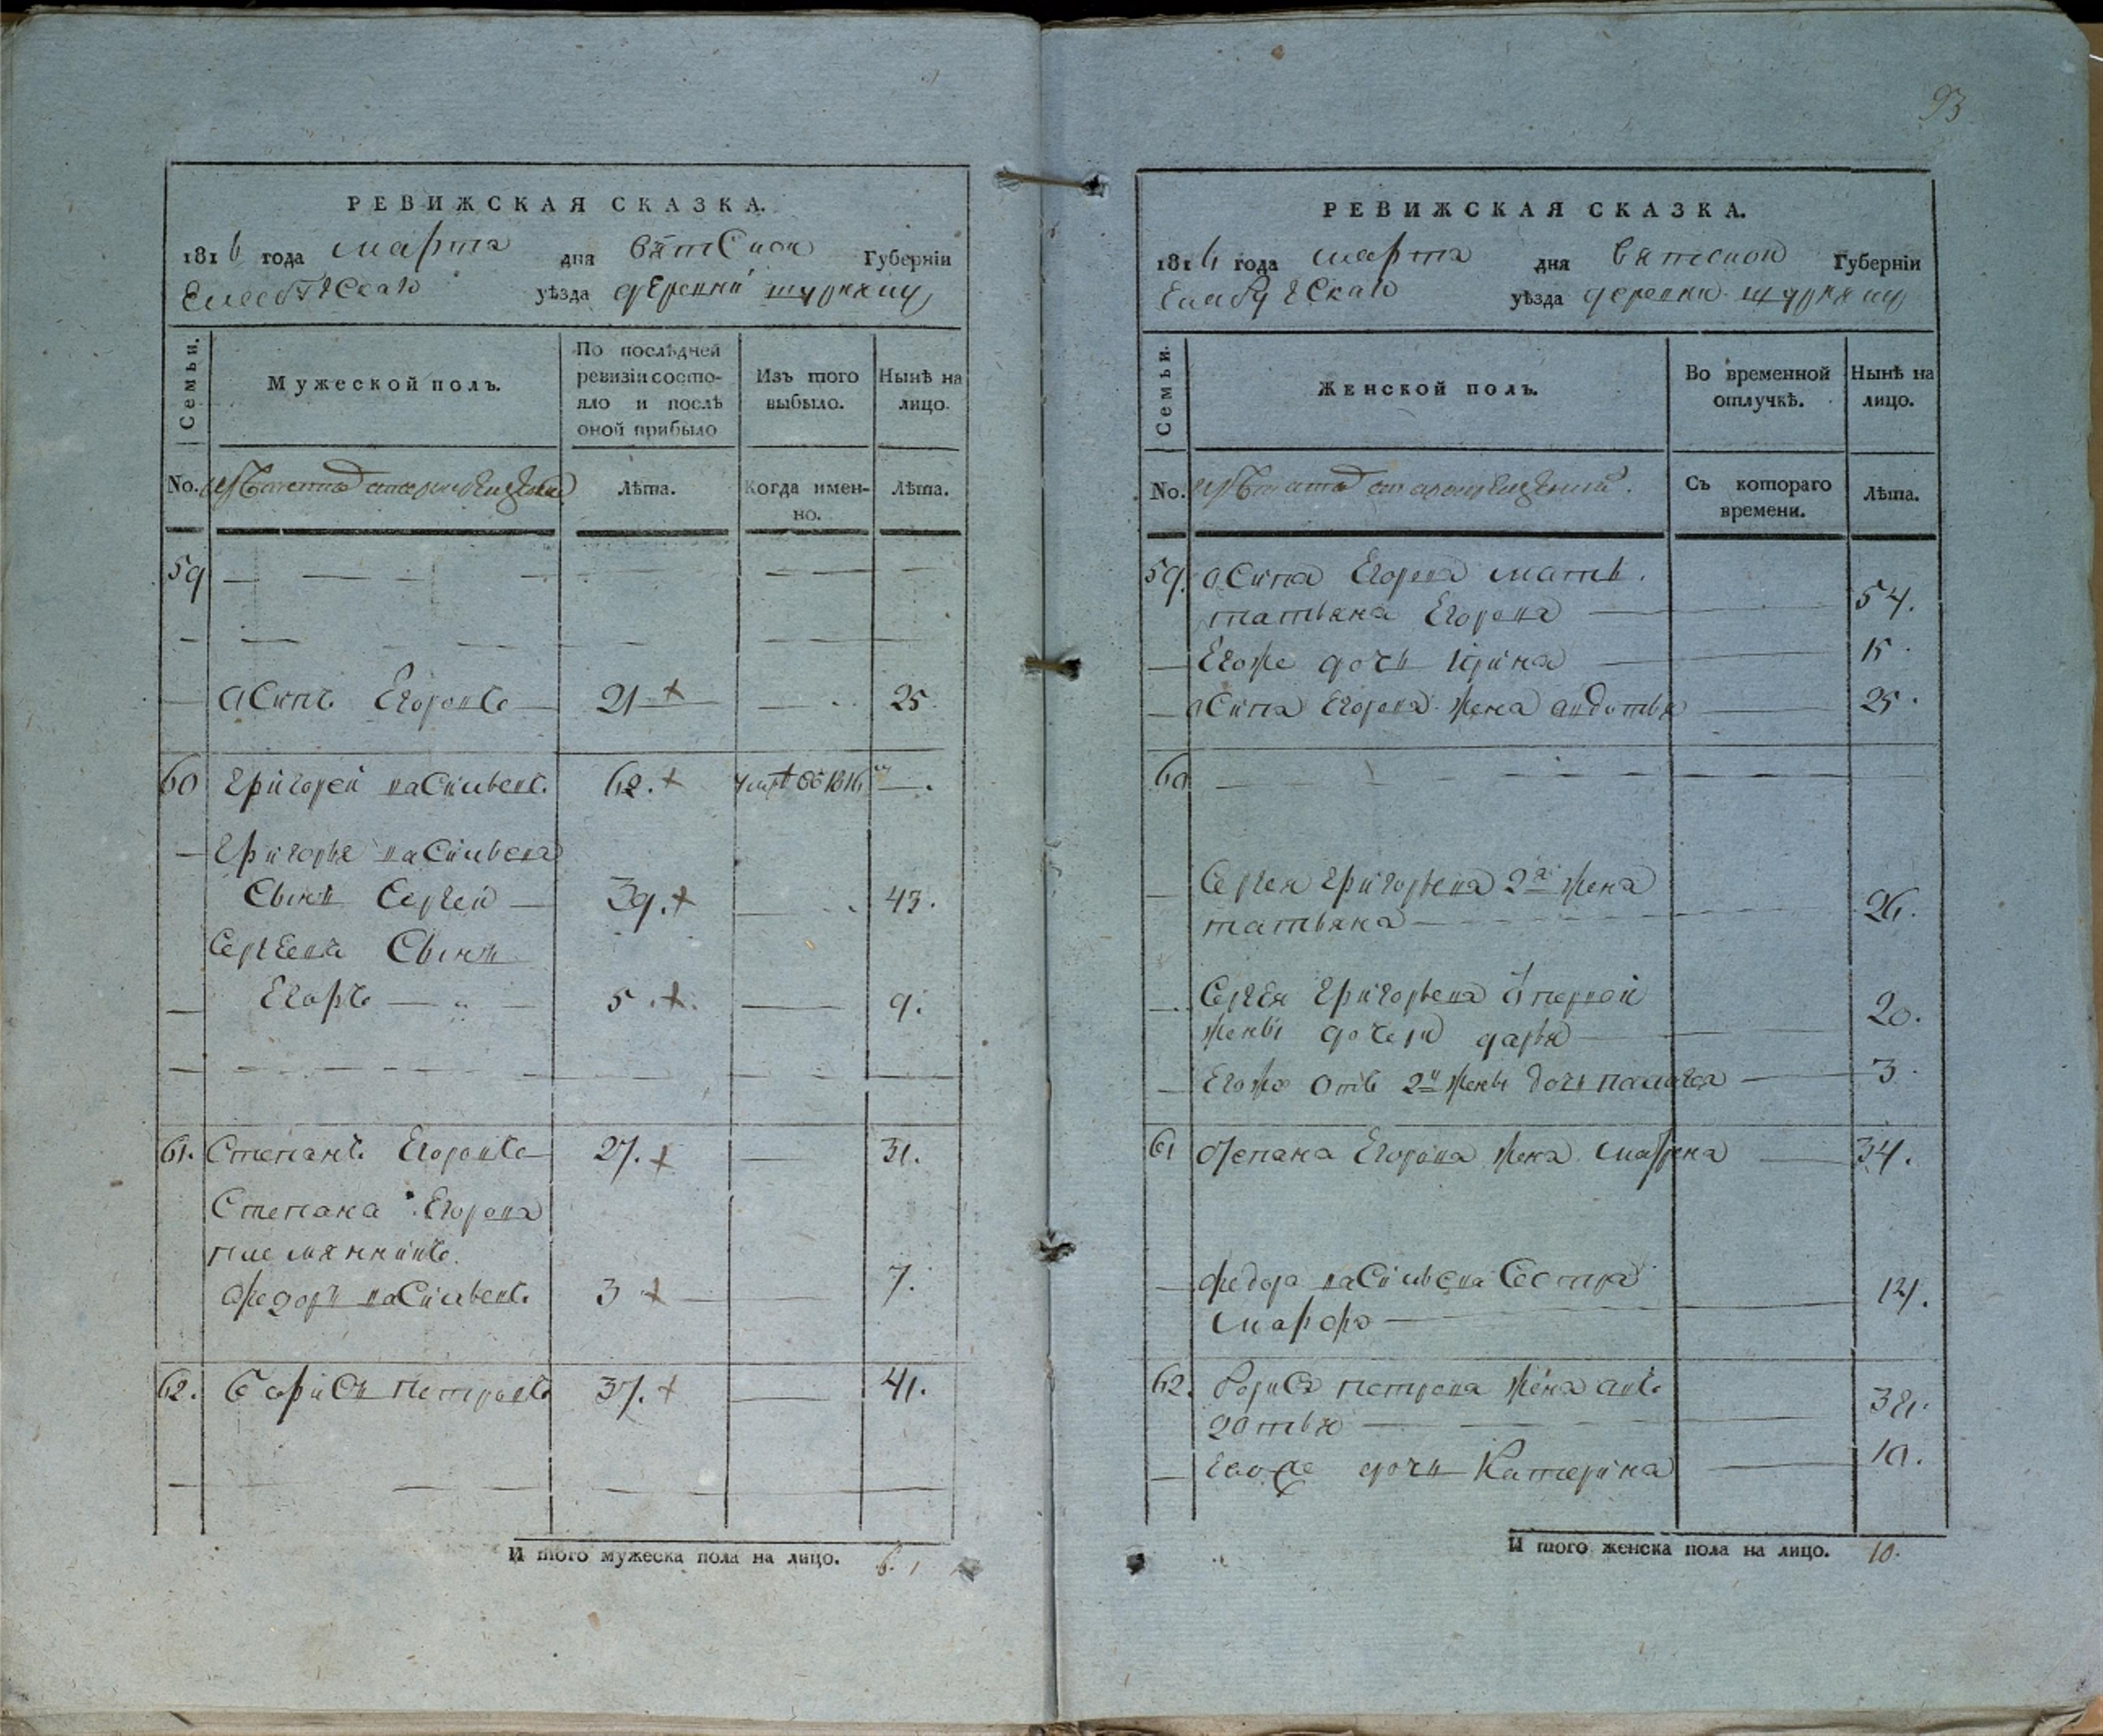 РЕВИЖСКАЯ СКАЗКА.
1816 года марта дня вятской Губерніи
Елабужскаго уѣзда деревни
Семьи.
Мужеской полъ.
По послѣдней
ревизіи состо-
яло и послѣ
оной прибыло
Изъ того
выбыло.
Нынѣ на
лицо.
No.
Лѣта.
Когда имен-
но.
Лѣта.
59
асипъ Егоровъ 21 25
60 Григорей васильевъ. 62. 1816
Григорья васильева
сынъ Сергей 39. 43.
Сергеевъ Сынъ
Егоръ 5. 9.
61. Степанъ Егоровъ 27. 31.
Степана Егорова
племянникъ
Федоръ васильевъ 3 7.
62. Борисъ Петровъ 37. 41.
И того мужеска пола на лицо. 6.
93
РЕВИЖСКАЯ СКАЗКА.
1816 года марта дня вятской Губерніи
Елабужскаго уѣзда деревни
Семьи.
Женской полъ.
Во временной
отлучкѣ.
Нынѣ на
лицо.
No.
Съ котораго
времени.
Лѣта.
59. асипа Егорова мать.
татьяна Егорова 54.
Егоже дочь Ирина 15.
асипа Егорова жена авдотья 25.
60
Сергея Григорьева 2я жена
татьяна 26.
Сергея Григорьева о первой
жены дочери дарья 20.
Егоже отъ 2й жены дочь палагея 3.
61 Степана Егорова жена матрена 34.
Федора васильева Сестра
марфа
62. Бориса петрова жена авъ
дотья
Егоже дочь Катерина 10.
И того женска пола на лицо. 10.